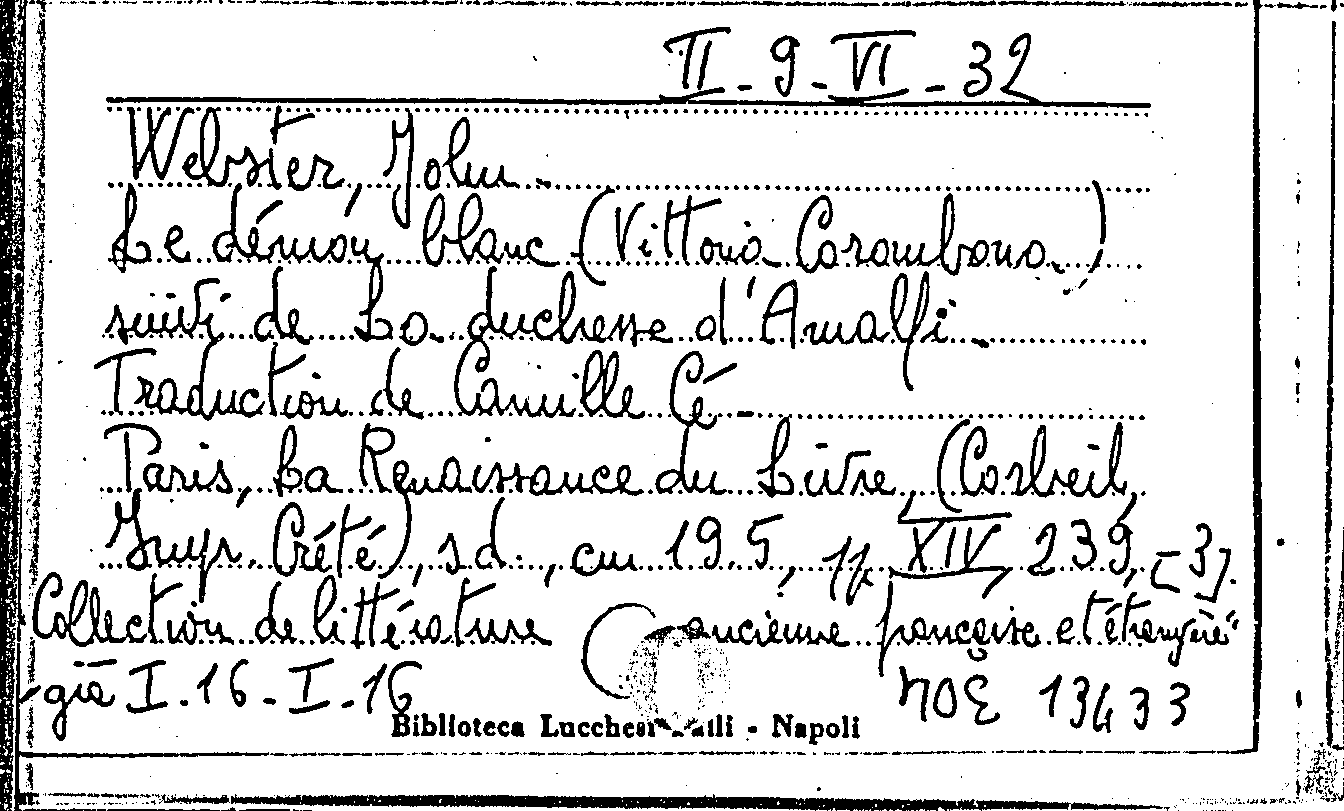 II - 9 - VI - 32
Webster, John -
Le démon blanc (Vittoria Corombona)
suivi de La duchesse d'Amalfi -
Traduction de Camille Cé -
Paris, La Renaissance du Livre, (Corbeil,
Impr. Crété), s.d., cm 19.5, pp. XIV, 239, [3].
Collection de littérature ancienne française et étrangère"
già I. 16 - I. 16 NOE 13433
Biblioteca Lucchesi Palli - Napoli